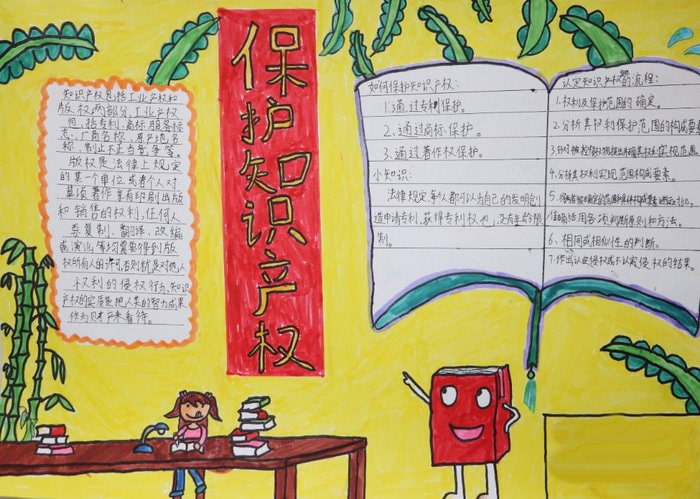 保护知识产权
知识产权包括工业产权和
版权两部分,工业产权
包括专利、商标、服务标
志、厂商名称、原产地名
称、制止不正当竞争等。
版权是法律上规定
的某一个单位或者个人对
某项著作享有印刷出版
和销售的权利,任何人
要复制、翻译、改编
或演出等均需要得到版
权所有人的许可,否则就是对他人
权利的侵权行为,知识
产权的实质是把人类的智力成果
作为财产来看待。
如何保护知识产权:
1.通过专利保护。
2、通过商标保护。
3.通过著作权保护。
小知识:
法律规定每人都可以为自己的发明创
造申请专利,获得专利权也没有年龄限
制。
认定知识产权的流程:
1.权利及保护范围的确定。
2.分析其权利保护范围的构成要
4.分析其权利实现范围构成要素。
准确适用各项判断原则和方法。
6、相同或相似性的判断。
7.作出认定侵权或不认定侵权的结果